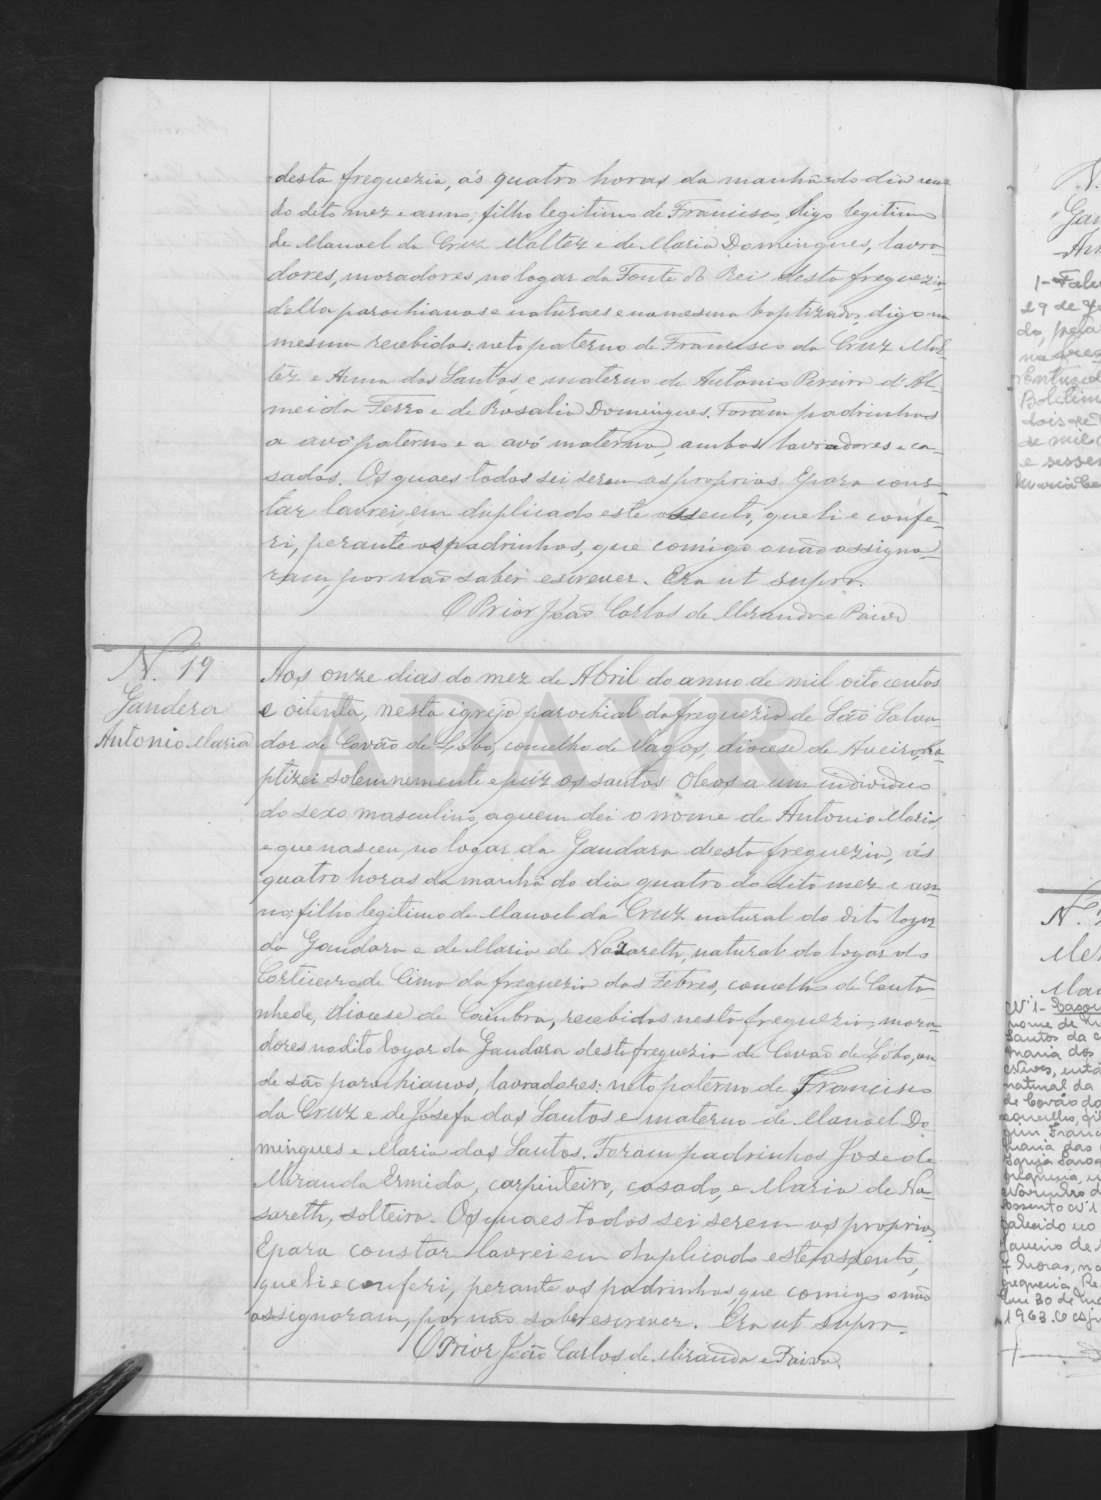 desta freguezia, ás quatro horas da manhã do dia
do dito mez e anno; filho legitimo de Francisco, digo legitimo
de Manoel da Cruz Maltez e de Maria Domingues, lavra-
dores, moradores, no logar da Fonte do Rei desta freguezia
della parochianos e naturaes e na mesma baptizados, digo na
mesma recebidos: neto paterno de Francisco da Cruz Mal-
tez e Anna dos Santos, e materno de Antonio Pereira d'Al-
meida Ferro e de Rosalia Domingues. Foram padrinhos
o avô paterno e a avó materna, ambos lavradores e ca-
sados. Os quaes todos sei serem os proprios. E para cons-
tar lavrei em duplicado este assento, que li e confe-
ri, perante os padrinhos, que comigo o não assigna-
ram, por não saber escrever. Era ut supra.
O Prior João Carlos de Miranda e Paiva
N. 19
Gandera
Antonio Maria
Aos onze dias do mez de Abril do anno de mil oitocentos
e oitenta, nesta igreja parochial da freguezia de São Salva-
dor de Covão do Lobo, concelho de Vagos, diocese de Aveiro, ba-
ptizei solemnemente e puz os santos Oleos a um individuo
do sexo masculino, a quem dei o nome de Antonio Maria,
e que nasceu, no logar da Gandara desta freguezia, ás
quatro horas da manhã do dia quatro do dito mez e an-
no; filho legitimo de Manoel da Cruz natural do dito logar
da Gandara e de Maria de Nazareth, natural do logar da
Corticeira de Cima da freguezia das Febres, concelho de Canta-
nhede, diocese de Coimbra, recebidos nesta freguezia, mora-
dores no dito logar da Gandara desta freguezia de Covão do Lobo, on-
de são parochianos, lavradores; neto paterno de Francisco
da Cruz e de Josefa dos Santos e materno de Manoel Do-
mingues e Maria dos Santos. Foram padrinhos José de
Miranda Ermida, carpinteiro, casado, e Maria de Na-
sareth, solteira. Os quaes todos sei serem os proprios.
E para constar lavrei em duplicado este assento,
que li e conferi, perante os padrinhos, que comigo o não
assignaram, por não saber escrever. Era ut supra.
O Prior João Carlos de Miranda e Paiva
ADAVR